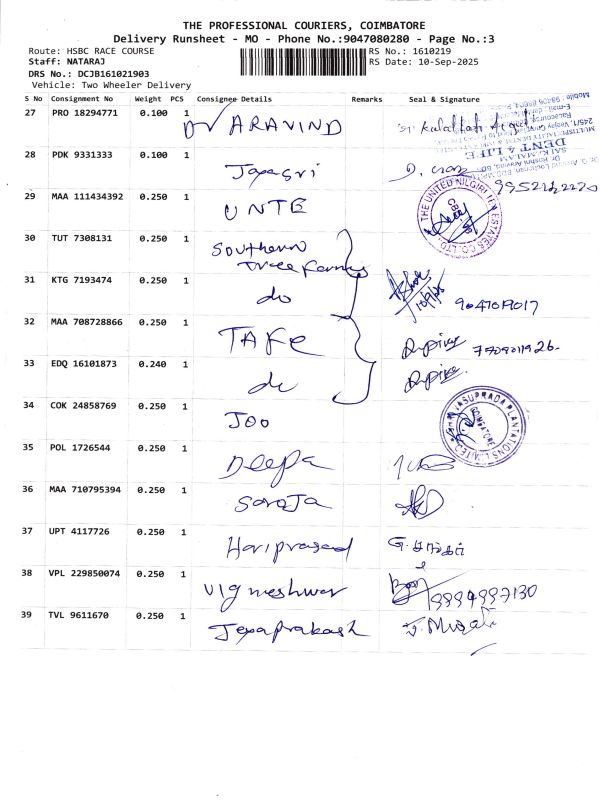 THE PROFESSIONAL COURIERS, COIMBATORE
Delivery Runsheet - MO - Phone No.:9047080280 - Page No.:3
Route: HSBC RACE COURSE RS No.: 1610219
Staff: NATARAJ RS Date: 10-Sep-2025
DRS No.: DCJB161021903
Vehicle: Two Wheeler Delivery
S No Consignment No Weight PCS Consignee Details Remarks Seal & Signature
27 PRO 18294771 0.100 1 Dr ARAVIND
DENT & LIFE
28 PDK 9331333 0.100 1 Jayasri
29 MAA 111434392 0.250 1 UNTE THE UNITED NILGIRI TEA ESTATES CO. LTD.
30 TUT 7308131 0.250 1 Southern
Tree Farms
31 KTG 7193474 0.250 1 do 10/9/25 9047019017
32 MAA 708728866 0.250 1 TAFE
33 EDQ 16101873 0.240 1 do
34 COK 24858769 0.250 1 JOO PLANTATIONS LIMITED COIMBATORE
35 POL 1726544 0.250 1 Deepa
36 MAA 710795394 0.250 1 Saroja
37 UPT 4117726 0.250 1 Hariprasad
38 VPL 229850074 0.250 1 Vigneshwar 9994997130
39 TVL 9611670 0.250 1 Jeyaprakash J. Murali